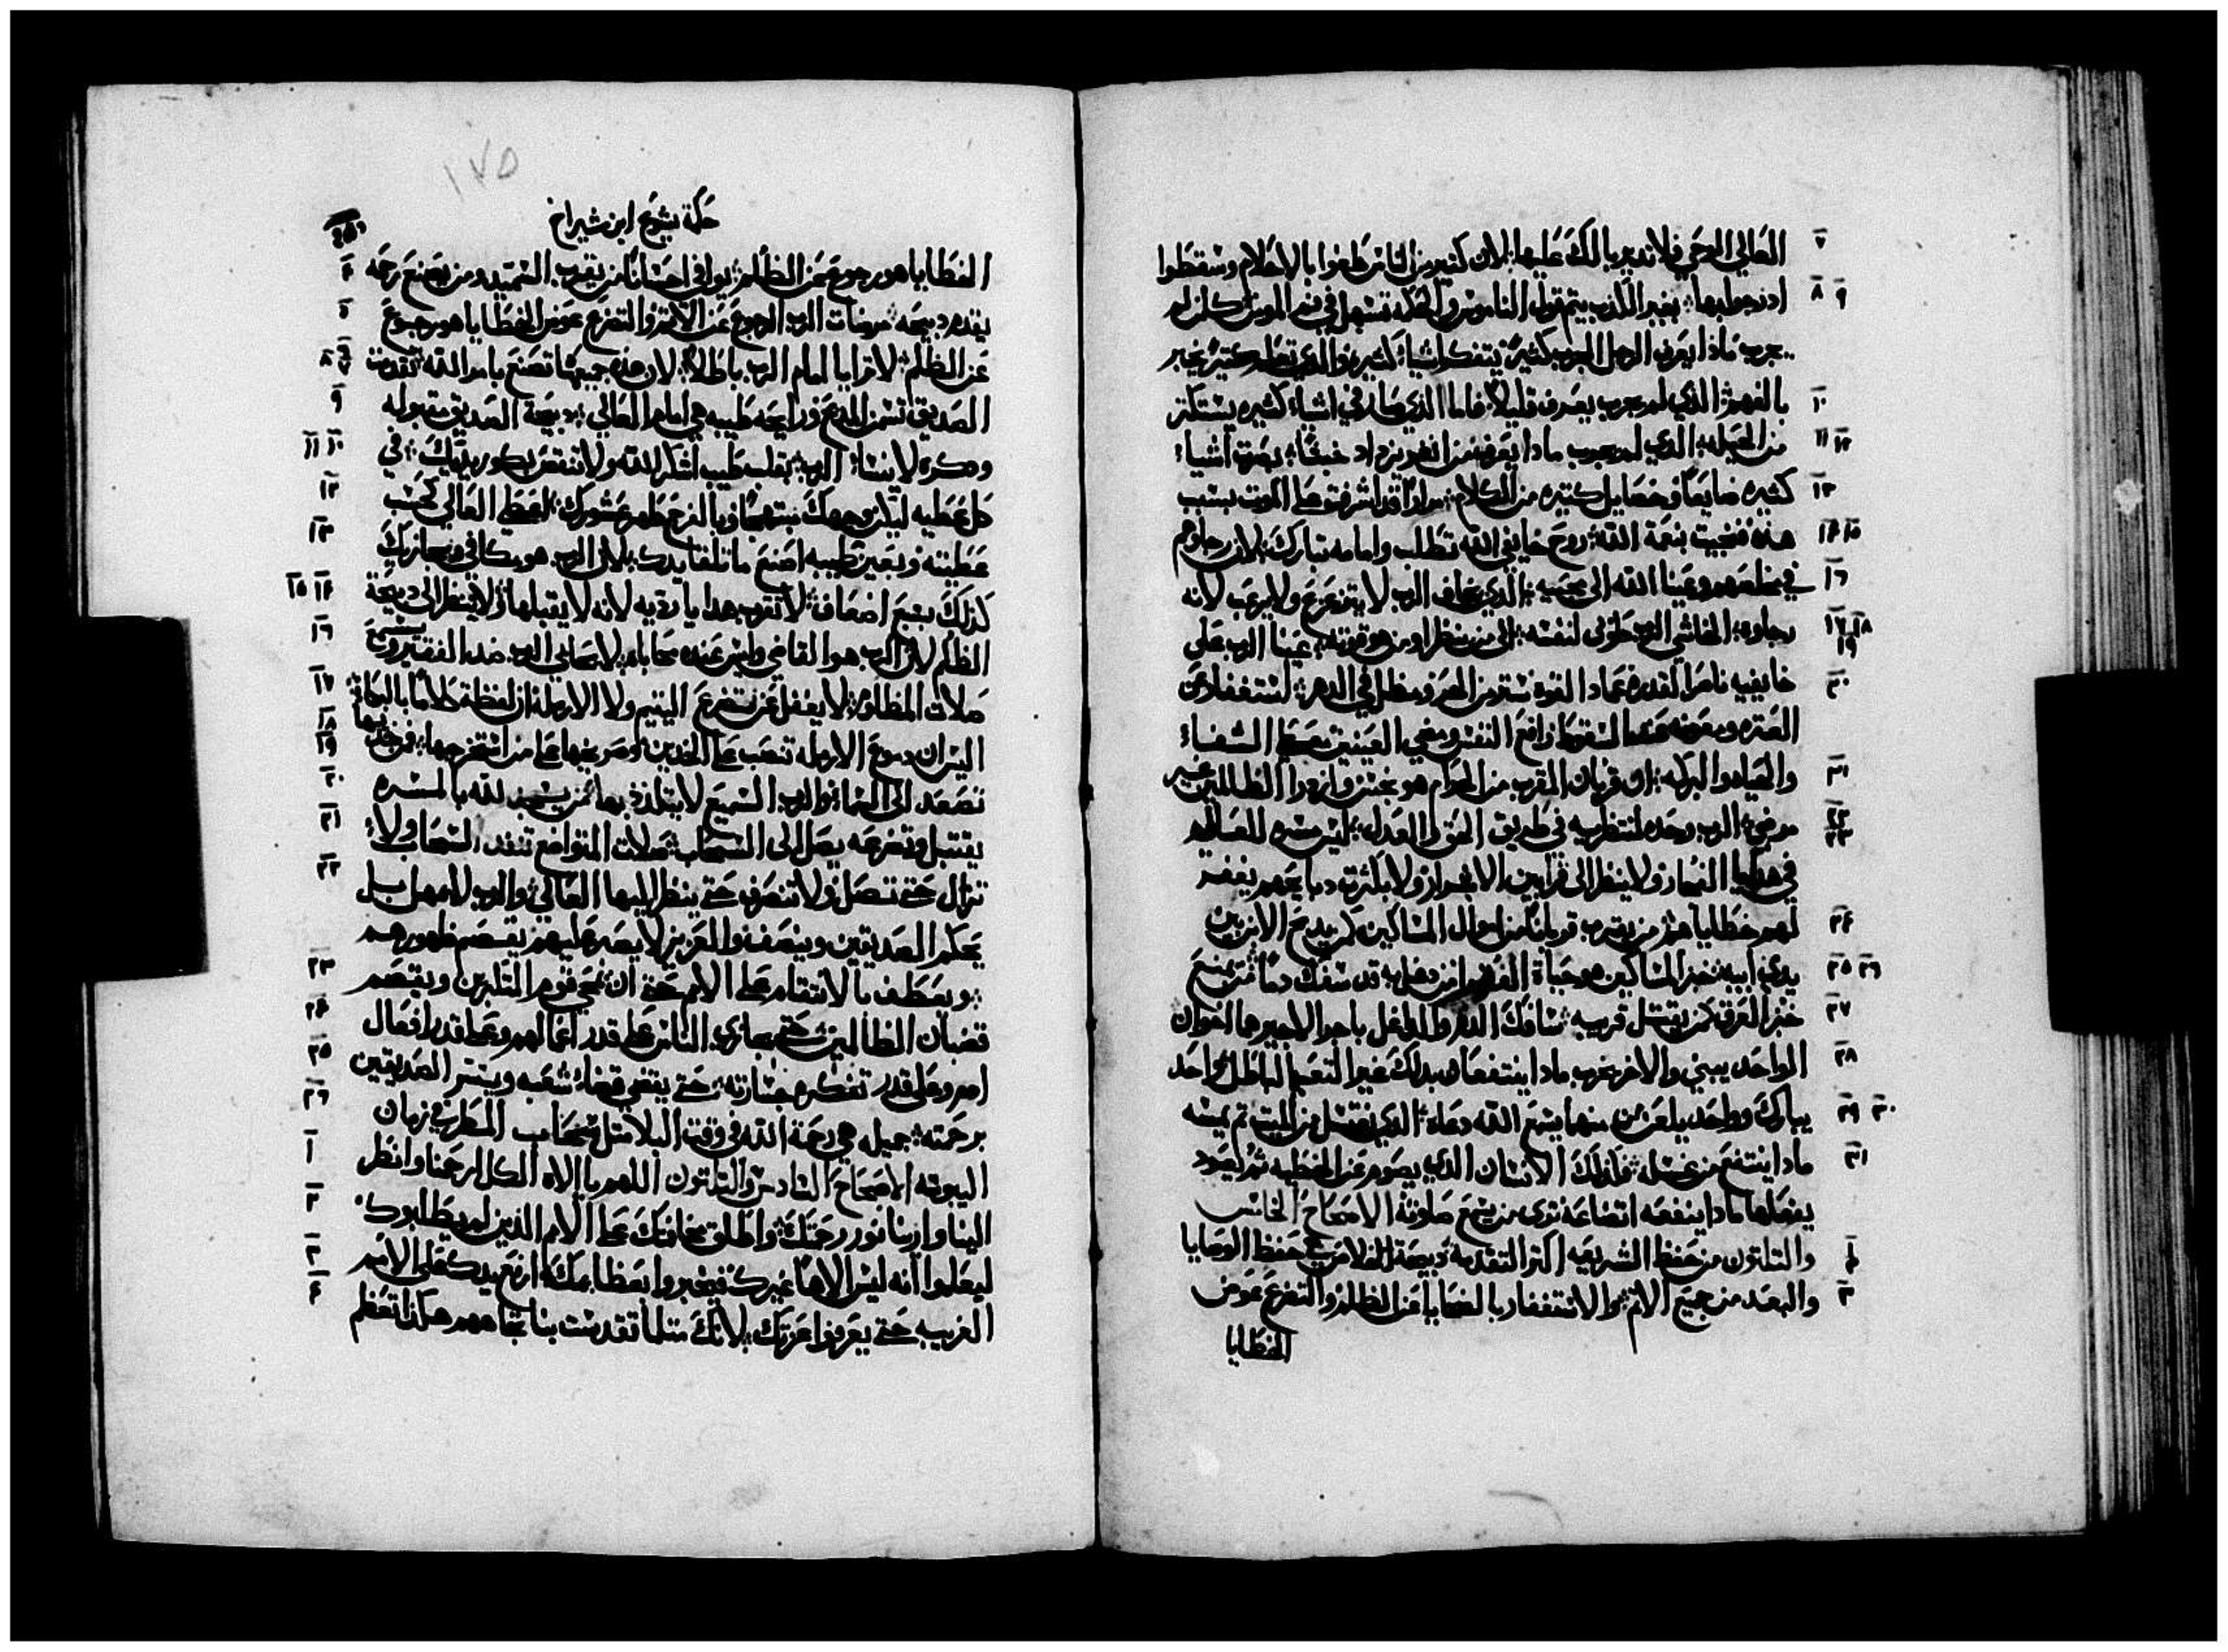 العالي الوحي فلا تدير بالك عليها لان كثيرين الناس طغوا بالاحلام وسقطوا
اذ توكلوا بها بغير الكذب يتم قول الناموس والحكمة تسهل في فم المومن كلن لم
يجرب ماذا يعرف الرجل المجرب كثيرًا يتفكر اشياء كثيره والذي تعلم كثيرًا يخبر
بالفهم الذي لم يجرب يعرف قليلًا فاما الذي صار في اشياء كثيره يستكثر
من الحيله الذي لم يجرب ماذا يعرف من انغر يزداد خبثًا بصرت اشياء
كثيره ضايعًا وخصايل كثيره من الكلام مرارًا قد اشرفت على الموت بسبب
هذه فنجيت بنعمة الله روح خايفي الله تطلب وامامه تبارك لان رجاوهم
في مخلصهم وعينا الله الى محبيه الذي يخاف الرب لا يتزعزع ولا يرعب لانه
رجاوه الخاشي الرب طوبى لنفسه الى من ينظر او من هو قوته عينا الرب على
خايفيه ناصر القدره عماد القوه ستر من الحر ومظل في الدهر استغفار عن
العثره ومعونه عند السقطه رافع النفس ومضي العينين معطي الشفاء
والحياه والبركه ان قربان المقرب من الحرام هو نجس وازدرا الظالمين غير
مرضي الرب وحده لمنتظريه في طريق الحق والعدل ليس مسره للعالي
في هدايا الفجار ولا ينظر الى قرابين الاشرار ولا بكثرت دبايحهم يغفر
لهم خطاياهم من يقرب قربانًا من اموال المساكين كمن يدبح الابن بين
يدي ابيه خبز المساكين هو حياة الفقرا من يخليه قد سفك دمًا من يمنع
خبز العرق كمن يقتل قريبه سافك الدم والداغل باجر الاجير هما اخوان
الواحد يبني والاخر يخرب ماذا ينتفعان بدلك غير التعب الباطل واحد
يبارك وواحد يلعن من منهما يسمع الله دعاه الذي يغتسل من الميت ثم يمسه
ماذا ينتفع من غسله فكذلك الانسان الذي يصوم عن الخطيه ثم يعود
يفعلها ماذا ينفعه اتضاعه ترى من يسمع صلوته الاصحاح الخامس
والتلتون من حفظ الشريعه اكثر التقدمة ذبيحة الخلاص هي حفظ الوصايا
والبعد من جميع الاثم والاستغفار بالضحايا عن الظلم والتضرع عوض
الخطايا
١٧٥
حكمة يشوع ابن شيراخ
الخطايا هو رجوع عن الظلم يوافي احسانًا من يقرب السميد ومن يصنع رحمه
يقدم دبيحه مرضات الرب الرجوع عن الاثم والتضرع عوض الخطايا هو رجوع
عن الظلم لا تترايا امام الرب باطلًا لان هذه جميعها تصنع بامر الله تقدمت
الصديق تسمن المدبح ورايحه طيبه هي امام العالي دبيحة الصديق مقبوله
ودكره لا ينساه الرب بقلب طيب اشكر الله ولا تنقص بكور يديك في
كل عطيه ليكن وجهك مبتهجًا وبالفرح طهر عشورك اعط العالي كحسب
عطيته وبعين طيبه اصنع ما تلقا يدك لان الرب هو مكافي ويجازيك
كذلك سبع اضعاف لا تقرب هدايا رديه لانه لا يقبلها ولا ينظر الى دبيحة
الظلم لان الرب هو القاضي وليس عنده محاباه لا يحابي الرب ضد الفقير ويسمع
صلات المظلوم لا يغفل عن تضرع اليتيم ولا الارمله ان لفظة كلامًا بالبكا
اليس ان دموع الارمله تنصب على الخدين وصريخها على من استخرجها فمن خديها
تصعد الى السما والرب السميع لا يتلذذ بها من يسجد لله بالمسره
يقتبل وتضرعه يصل الى السحاب صلات المتواضع تنفد السحاب ولا
تزال حتى تصل ولا تنصرف حتى ينظر اليها العالي والرب لا يمهل بل
يحكم الصديقين وينصف والعزيز لا يصبر عليهم يقصم ظهورهم
ويعطف بالانتقام على الامم حتى ان يمحي قوم المتكبرين ويقصم
قضبان الظالمين حتى يجازي الناس على قدر اعمالهم وعلى قدر افعال
ادم وعلى قدر تفكره جسارته حتى يقضي قضا شعبه ويسر الصديقين
برحمته جميله هي رحمة الله في وقت البلا مثل سحاب المطر في زمان
اليبوسه الاصحاح السادس والتلتون اللهم يا الاه الكل ارحمنا وانظر
الينا وارينا نور رحمتك واطلق مخافتك على الامم الذين لم يطلبوك
ليعلموا انه ليس الاهًا غيرك فيخبروا بعظايمك ارفع يدك على الامم
الغريبه حتى يعرفوا عزتك لانك مثلما تقدست بنا تجاههم هكذا تعظم